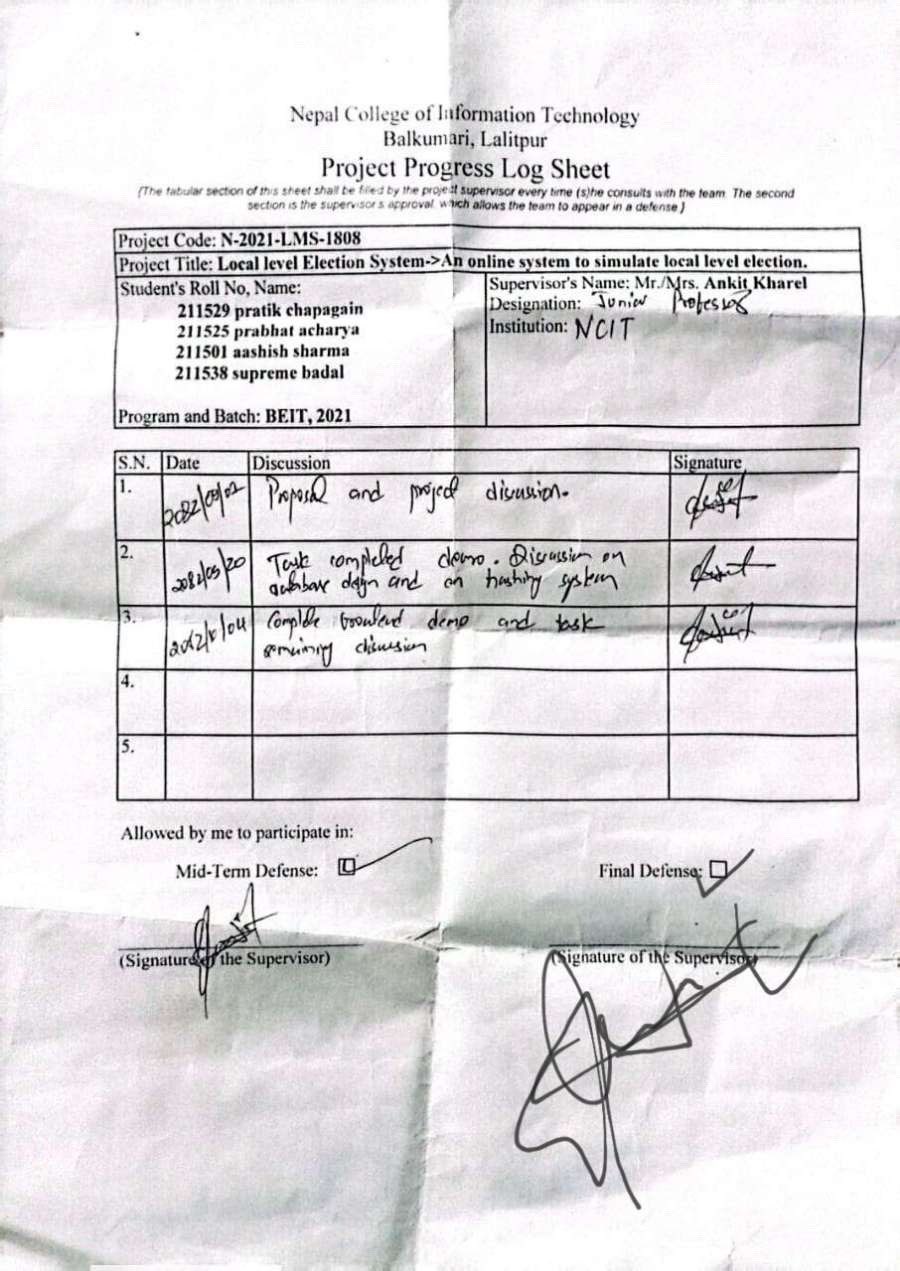 Nepal College of Information Technology
Balkumari, Lalitpur
Project Progress Log Sheet
(The tabular section of this sheet shall be filled by the project supervisor every time (s)he consults with the team. The second
section is the supervisor's approval, which allows the team to appear in a defense.)
Project Code: N-2021-LMS-1808
Project Title: Local level Election System->An online system to simulate local level election.
Student's Roll No, Name:
211529 pratik chapagain
211525 prabhat acharya
211501 aashish sharma
211538 supreme badal
Program and Batch: BEIT, 2021
Supervisor's Name: Mr./Mrs. Ankit Kharel
Designation: Junior Professor
Institution: NCIT
S.N. Date Discussion Signature
1. 2082/09/02 Proposal and project discussion.
2. 2082/09/20 Task completed demo. Discussion on
database design and on hashing system
3. Complete frontend demo and task
remaining discussion
4.
5.
Allowed by me to participate in:
Mid-Term Defense:
Final Defense:
(Signature of the Supervisor)
(Signature of the Supervisor)